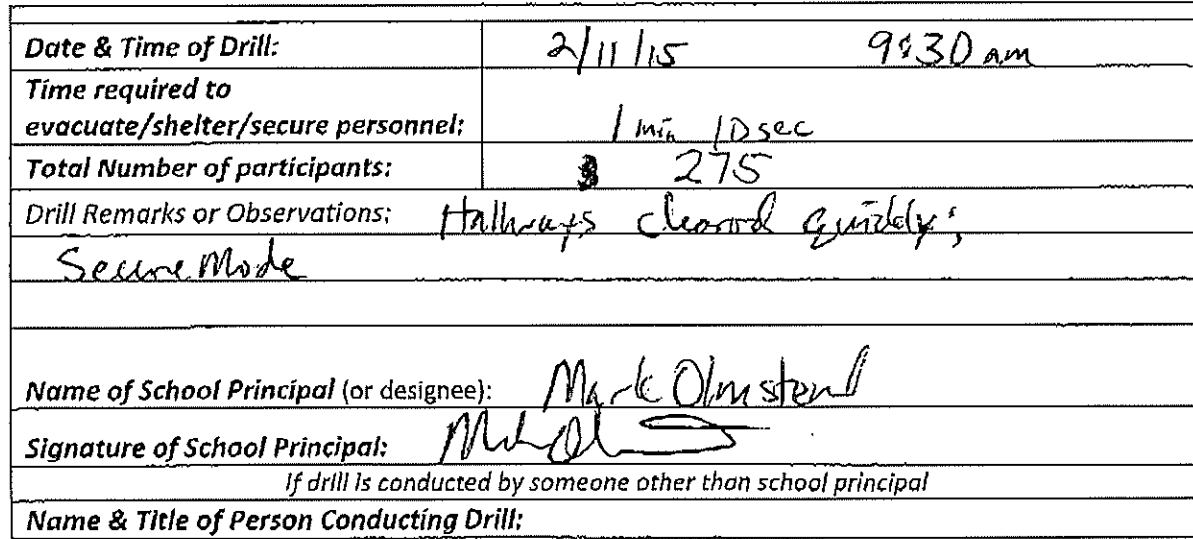 Date & Time of Drill: 2/11/15 9:30 am
Time required to
evacuate/shelter/secure personnel: 1 min 10 sec
Total Number of participants: 275
Drill Remarks or Observations: Hallways cleared quickly;
Secure Mode
Name of School Principal (or designee): Mark Olmstead
Signature of School Principal:
If drill is conducted by someone other than school principal
Name & Title of Person Conducting Drill: